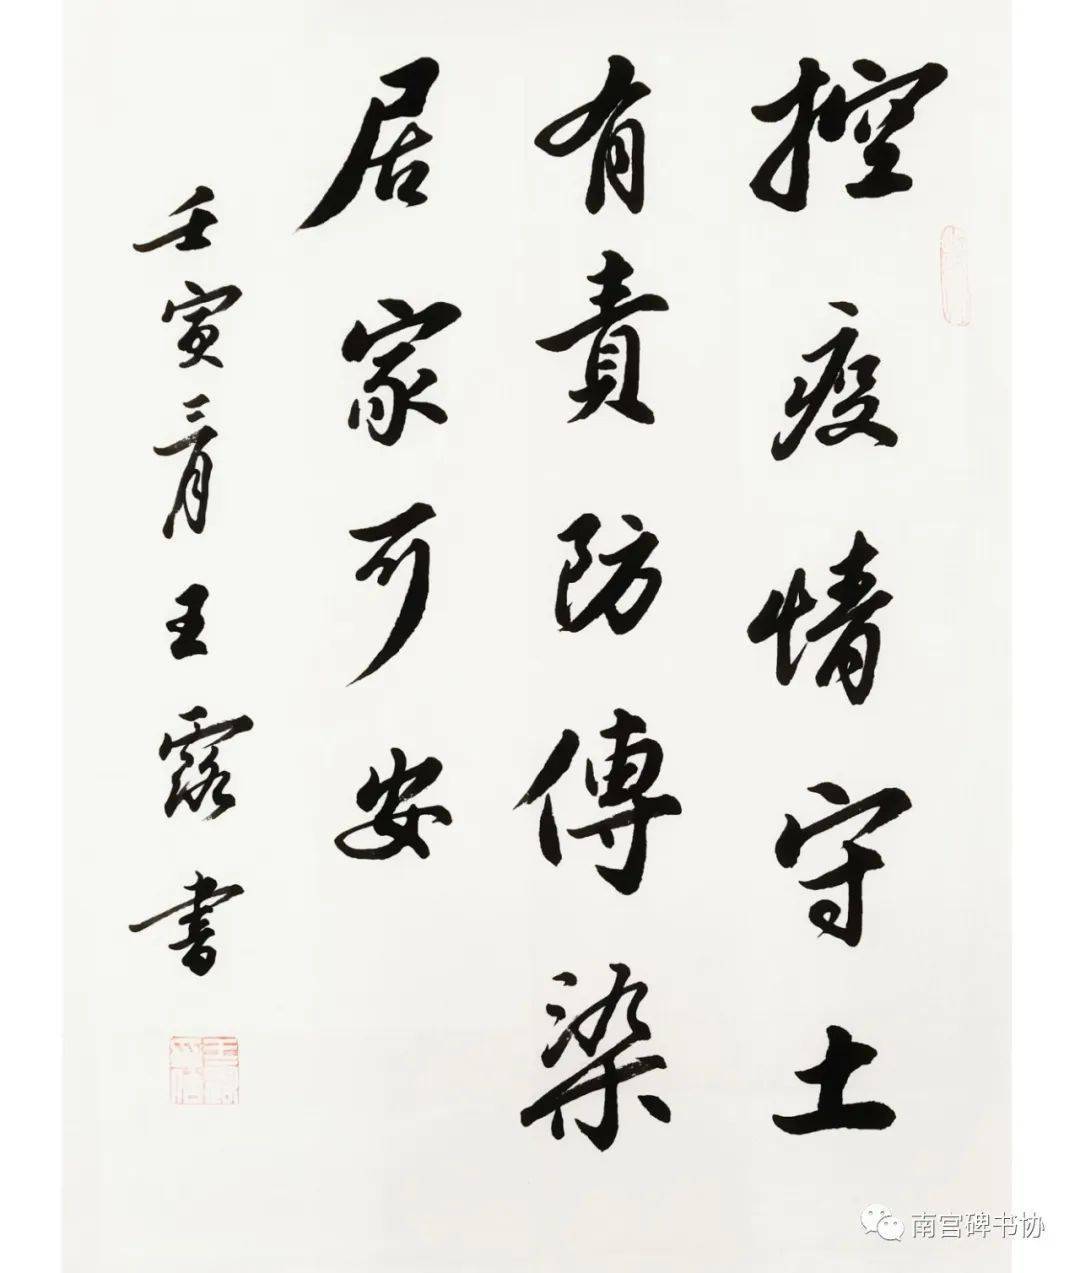 控疫情守土
有責防傳染
居家可安
壬寅三月王露書
南宫碑书协